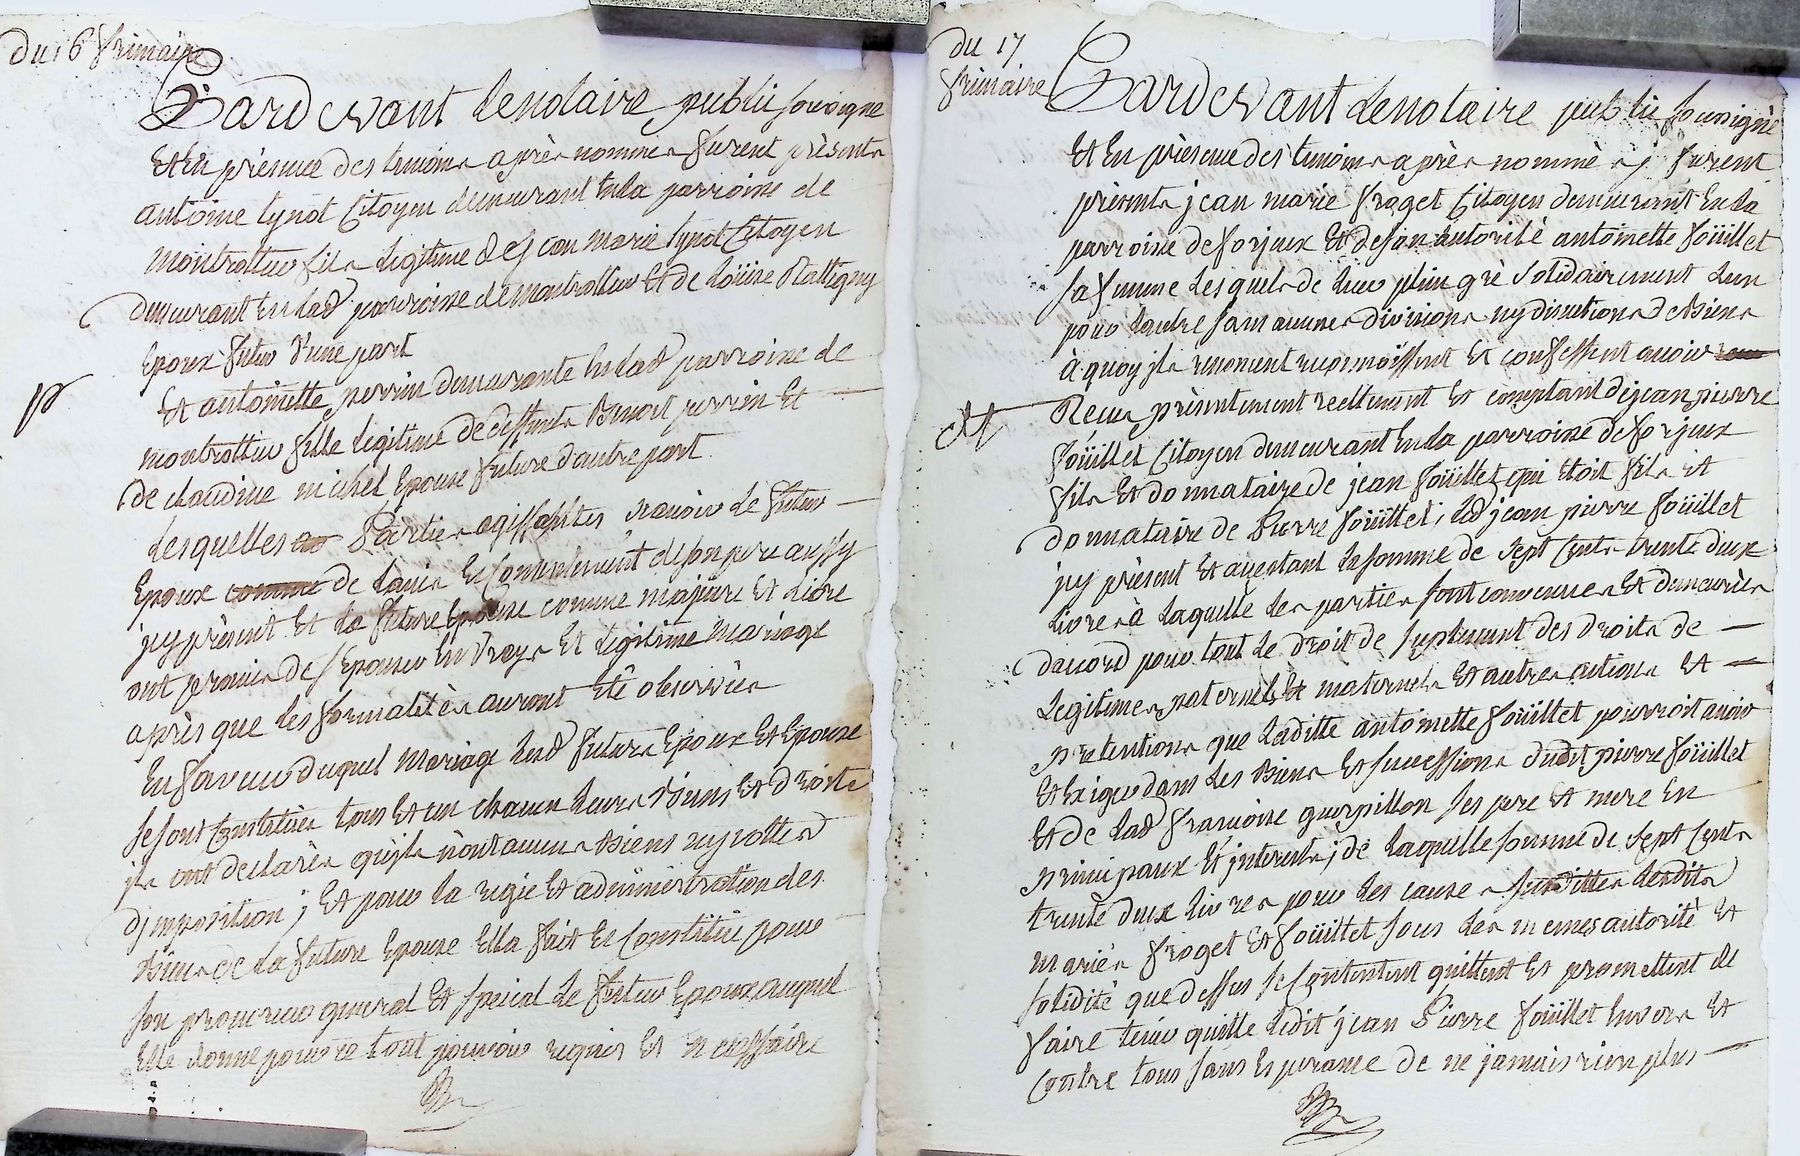 Du 16 frimaire
Pardevant le notaire public soussigne
Et En présence des temoins après nommes furent présents
antoine tynot Citoyen demeurant En la parroisse de
montrottier fils legitime de jean marie tynot Citoyen
demeurant En lad parroisse de montrottier Et de Loüise
Epoux futur d'une part
Et antoinette perrin demeurante En lad parroisse de
montrottier fille legitime de deffunts Benoit perrin Et
de claudine michel Epouse future d'autre part
Lesquelles Parties agissantes scavoir le futur
Epoux comme de l'avis Et Consentement de son pere aussy
jcy présent Et la future Epouse comme majeure Et libre
ont promis de s'Epouser En vraye Et legitime Mariage
après que les formalités auront Eté observées
En faveur duquel Mariage lesd futurs Epoux Et Epouse
se sont Constitués tous Et un chacun leurs Biens Et droits
jls ont declarés qu'jls n'ont aucuns Biens ny rolles
d'jmposition ; Et pour la regie Et administration des
Biens de la future Epouse Ella fait Et Constitué pour
son procureur general Et special le futur Epoux auquel
Elle donne pour ce tout pouvoir requis Et necessaire
du 17
frimaire
Pardevant le notaire public soussigné
Et En présence des temoins après nommés j furent
présents jean marie froget Citoyen demeurant En la
parroisse de forjeux Et de son autorité antoinette foüillet
sa femme lesquels de leur plein gré solidairement l'un
pour l'autre sans aucunes divisions ny discutions de Biens
à quoy jls renoncent reconnoissent Et confessent avoir
Recu présentement reellement Et comptant de jean pierre
foüillet Citoyen demeurant En la parroisse de forjeux
fils Et donnataire de jean foüillet qui Etoit fils Et
donnataire de Pierre foüillet, led jean pierre foüillet
jcy présent Et acceptant la somme de sept Cents trente deux
livres à laquelle les parties sont convenues Et demeurées
d'accord pour tout le droit de suplement des droits de
legitimes paternels Et maternels Et autres actions Et
pretentions que laditte antoinette foüillet pourroit avoir
Et Exiger dans les Biens Et successions dudit pierre foüillet
Et de lad francoise guerpillon ses pere Et mere En
principaux Et jnterets ; de laquelle somme de sept Cents
trente deux livres pour les causes susdittes lesdits
mariés froget Et foüillet sous les memes autorité Et
solidité que dessus se Contentent quittent Et promettent de
faire tenir quitte ledit jean Pierre foüillet Envers Et
Contre tous sans Esperance de ne jamais rien plus